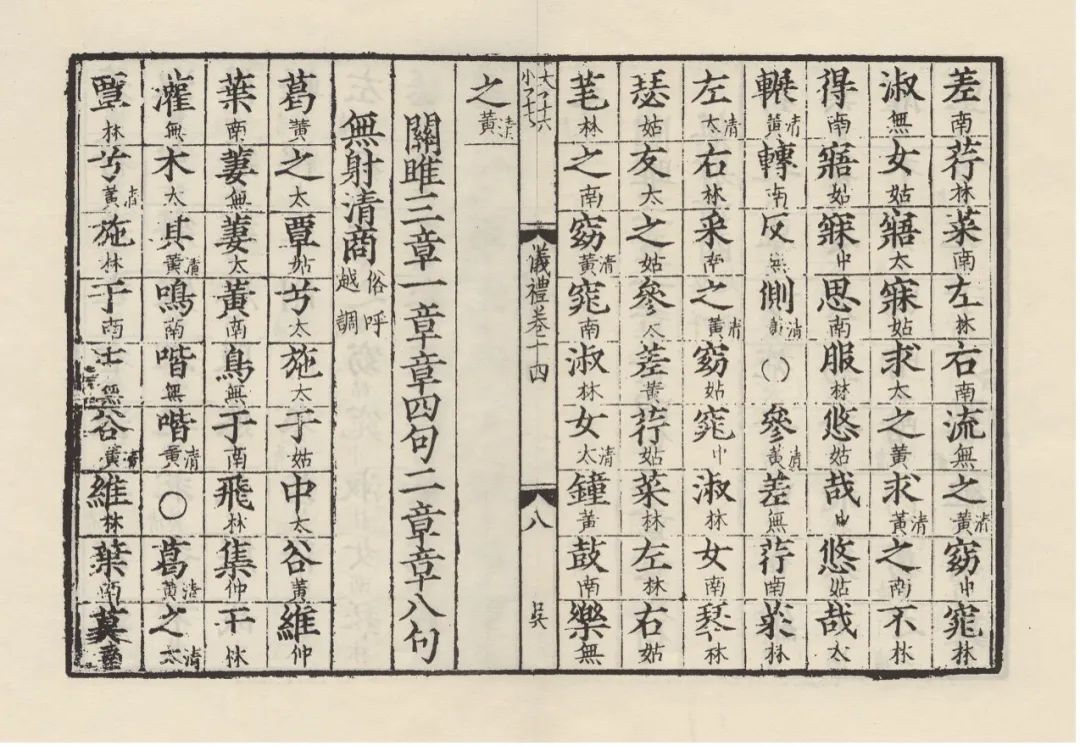 差南荇林菜南左林右南流無之黃清窈中窕林
淑無女姑寤太寐姑求太之黃求黃清之南不林
得南寤姑寐中思南服林悠姑哉中悠姑哉太
輾黃清轉南反無側黃清〇參黃清差無荇南菜林
左太清右林采南之黃清窈姑窕中淑林女南琴林
瑟姑友太之姑參太差黃荇姑菜林左林右姑
芼林之南窈黃清窕南淑林女太清鐘黃鼓南樂無
大八十六
小八十七
儀禮卷十四
八
吳
之黃清
關雎三章一章章四句二章章八句
無射清商俗呼越調
葛黃之太覃姑兮太施太于姑中太谷黃維仲
葉南萋無萋太黃南鳥無于南飛林集仲于林
灌無木太其黃清鳴南喈無喈黃清〇葛黃清之太清
覃林兮黃清施林于南中無谷黃清維林葉南莫南